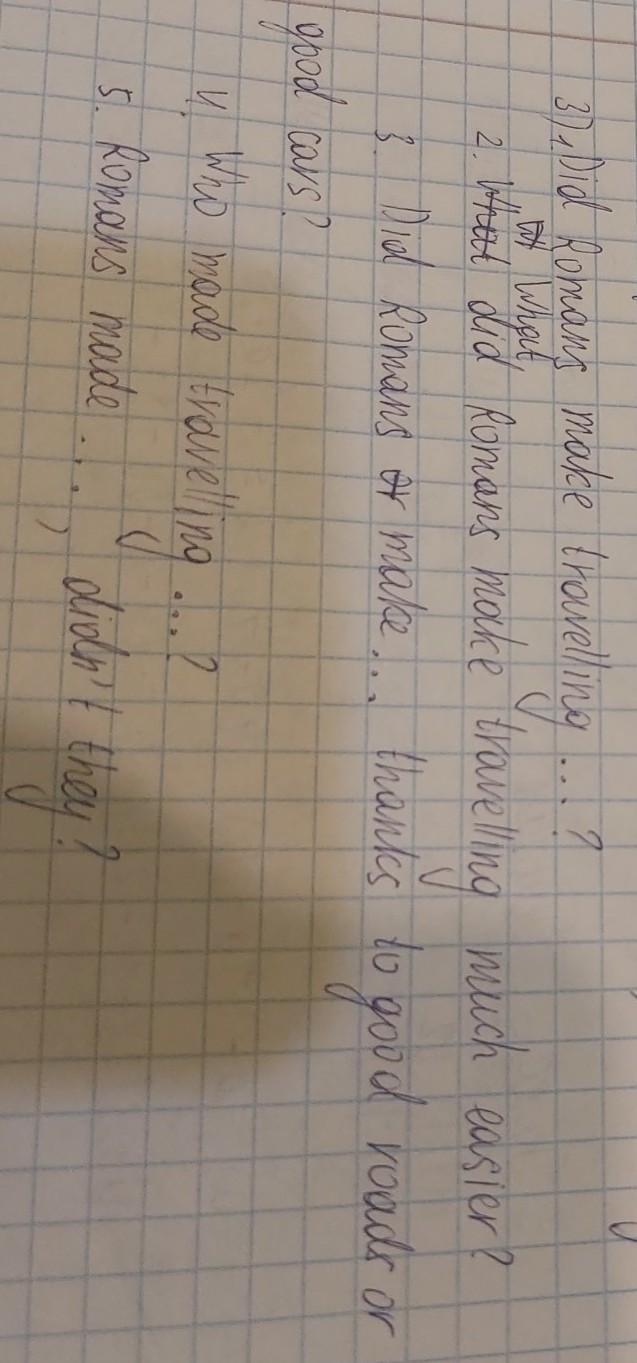 3) 1. Did Romans make travelling ...?
What
2. What did Romans make travelling much easier?
3. Did Romans or make ... thanks to good roads or
good cars?
4. Who made travelling ...?
5. Romans made ..., didn't they?